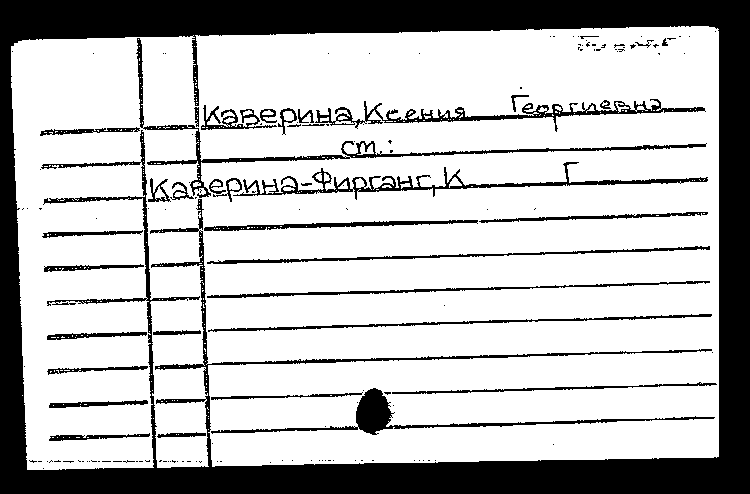 Каверина, Ксения Георгиевна
ст.:
Каверина-Фирганг, К Г